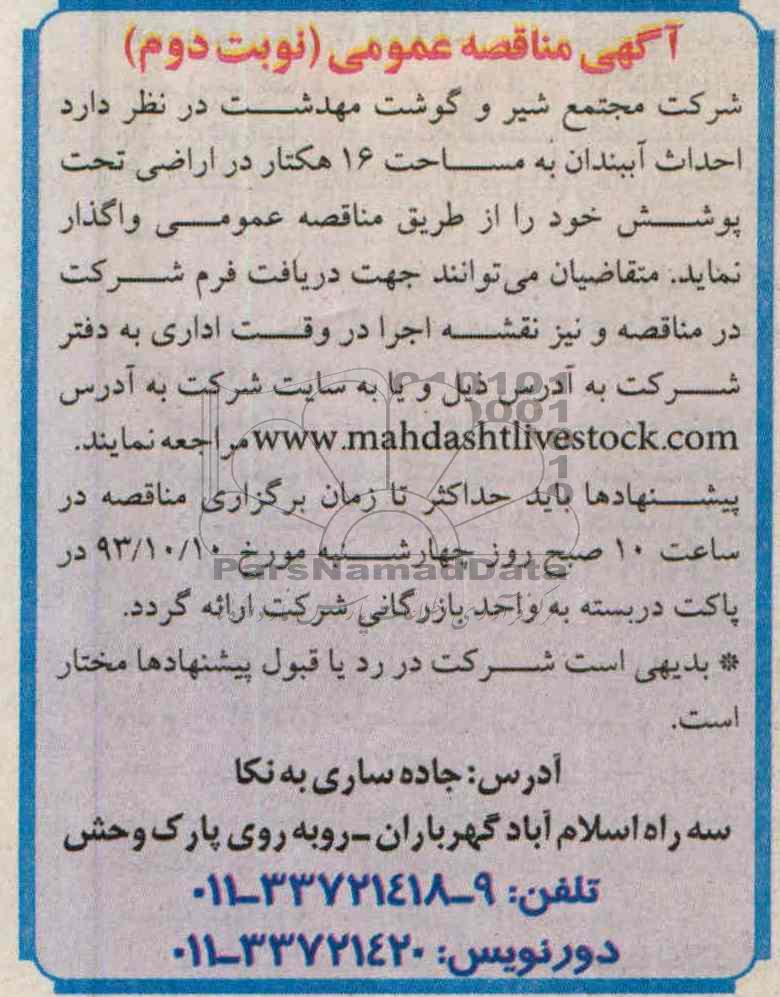 آگهی مناقصه عمومی (نوبت دوم)
شرکت مجتمع شیر و گوشت مهدشت در نظر دارد
احداث آببندان به مساحت ۱۶ هکتار در اراضی تحت
پوشش خود را از طریق مناقصه عمومی واگذار
نماید. متقاضیان می‌توانند جهت دریافت فرم شرکت
در مناقصه و نیز نقشه اجرا در وقت اداری به دفتر
شرکت به آدرس ذیل و یا به سایت شرکت به آدرس
www.mahdashtlivestock.com مراجعه نمایند.
پیشنهادها باید حداکثر تا زمان برگزاری مناقصه در
ساعت ۱۰ صبح روز چهارشنبه مورخ ۹۳/۱۰/۱۰ در
ParsNamadData
پاکت دربسته به واحد بازرگانی شرکت ارائه گردد.
* بدیهی است شرکت در رد یا قبول پیشنهادها مختار
است.
آدرس: جاده ساری به نکا
سه راه اسلام آباد گهرباران - روبه روی پارک وحش
تلفن: ۹-۰۱۱-۳۳۷۲۱۴۱۸
دورنویس: ۰۱۱-۳۳۷۲۱۴۲۰